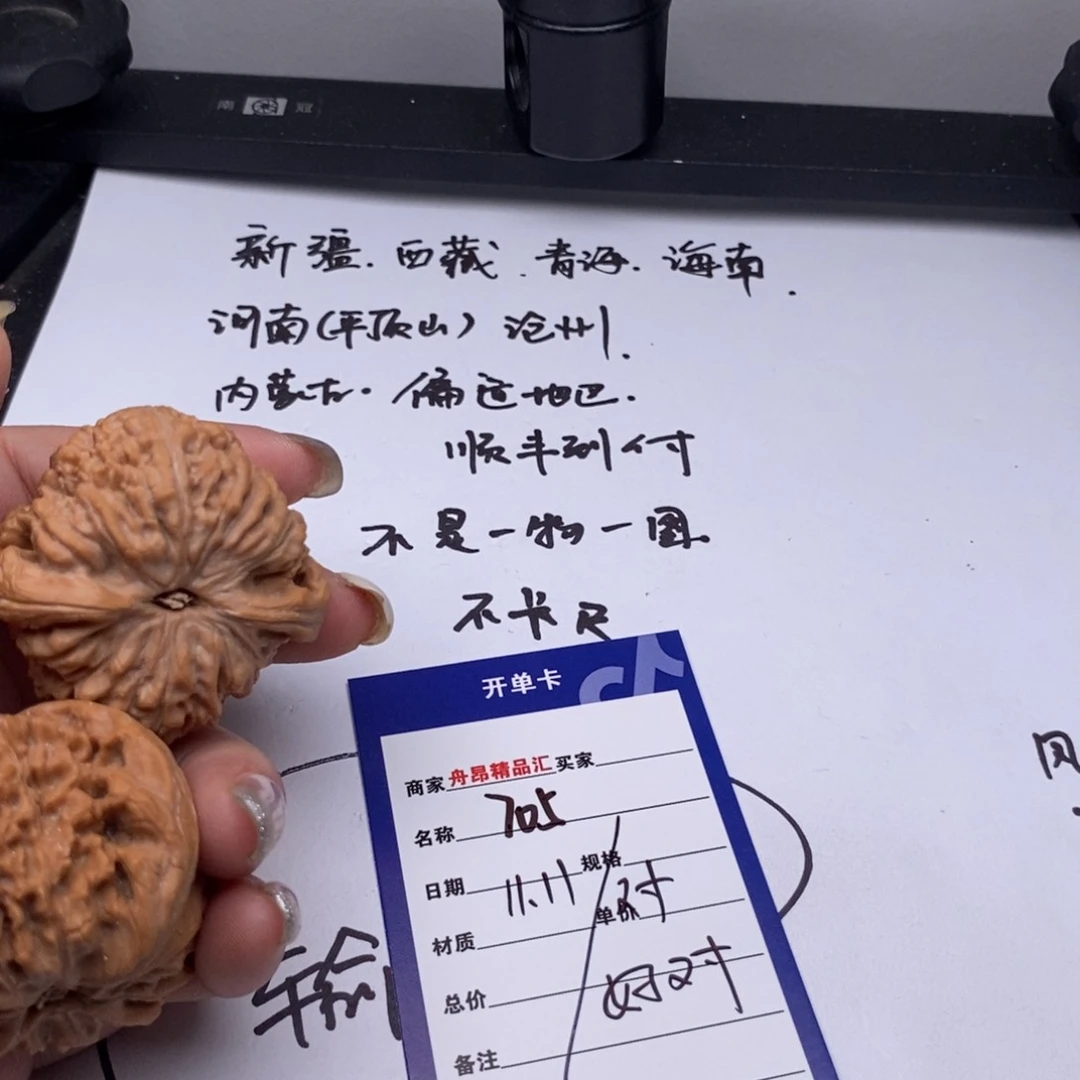 南 冠
新疆.西藏.青海.海南.
河南(平顶山)沧州.
内蒙古.偏远地区.
顺丰到付
不是一物一图.
不卡尺
开单卡
商家 舟昂精品汇 买家
名称 705
日期 11.11 规格
材质 单价 对
总价 好对
备注
输
风